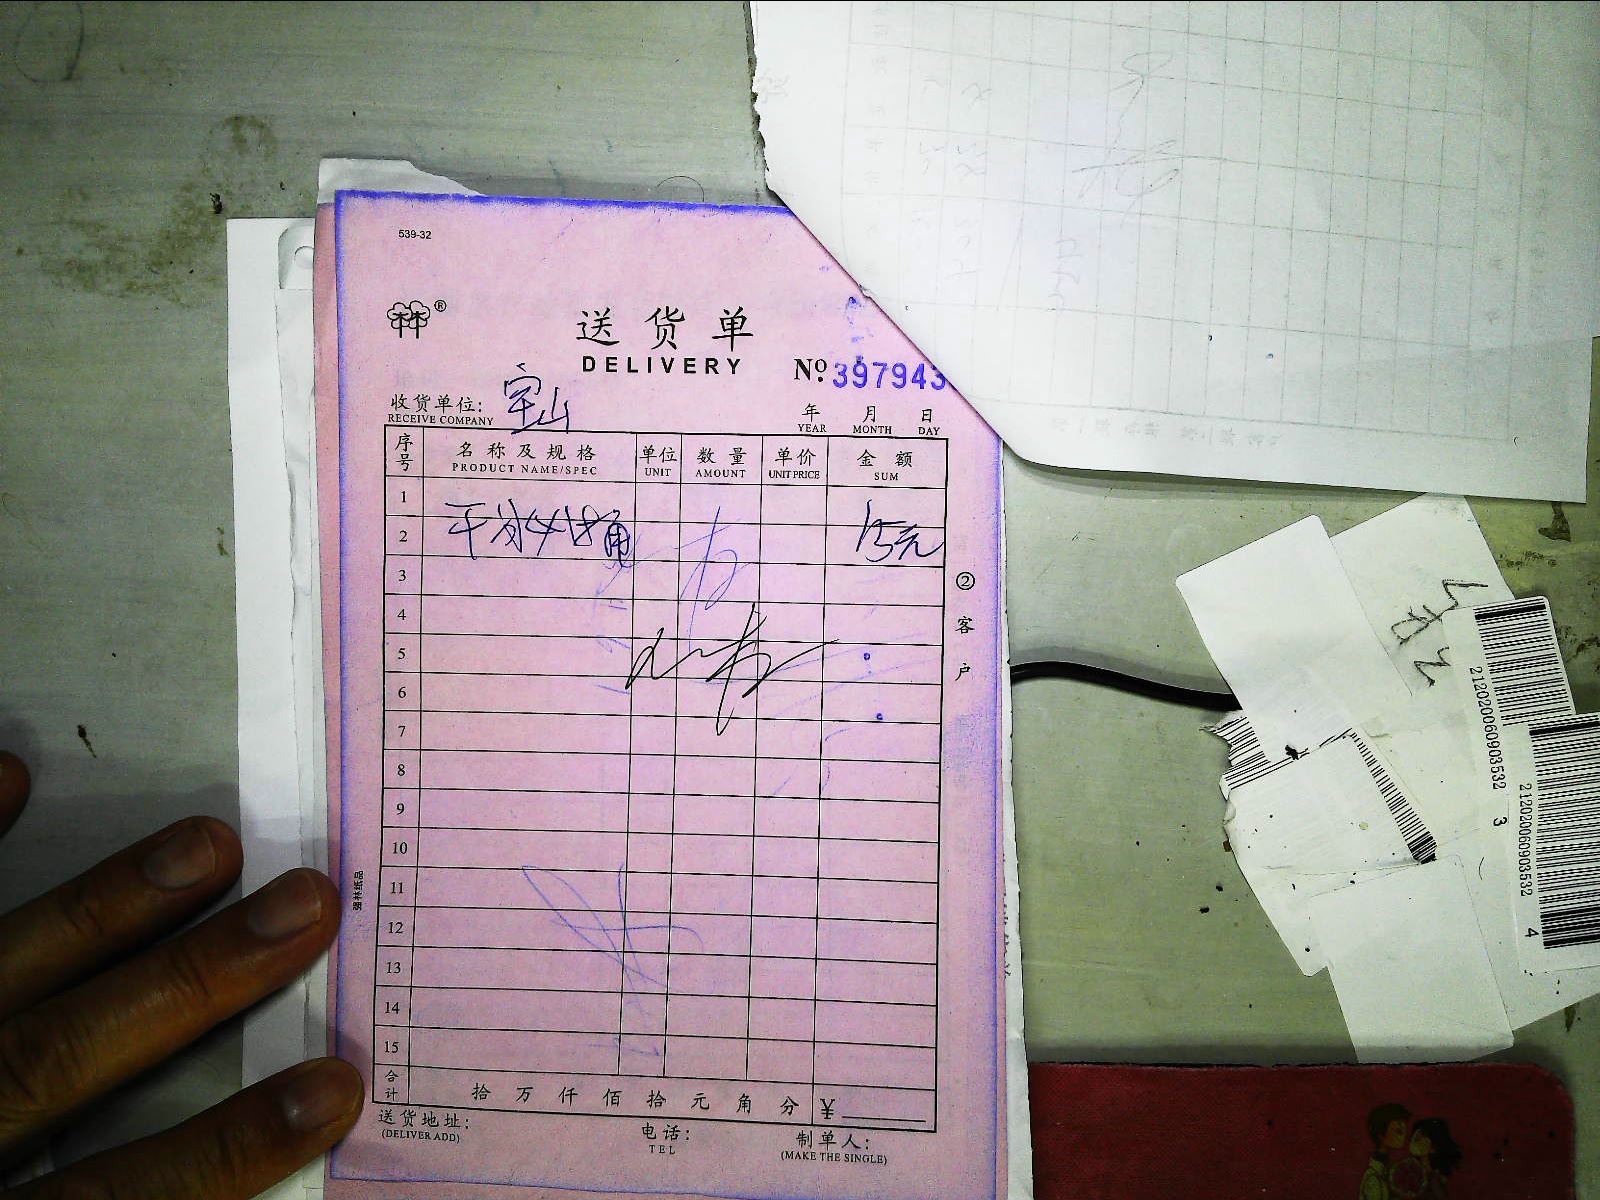 539-32
®
送货单
DELIVERY
No. 397943
收货单位: 宝山
RECEIVE COMPANY
年 月 日
YEAR MONTH DAY
序号 名称及规格 单位 数量 单价 金额
PRODUCT NAME/SPEC UNIT AMOUNT UNIT PRICE SUM
1
2 15元
3
4
5
6
7
8
9
10
11
12
13
14
15
合计 拾 万 仟 佰 拾 元 角 分 ¥
送货地址: 电话: 制单人:
(DELIVER ADD) TEL (MAKE THE SINGLE)
② 客户
强林纸品
212020060903532 3
212020060903532 4